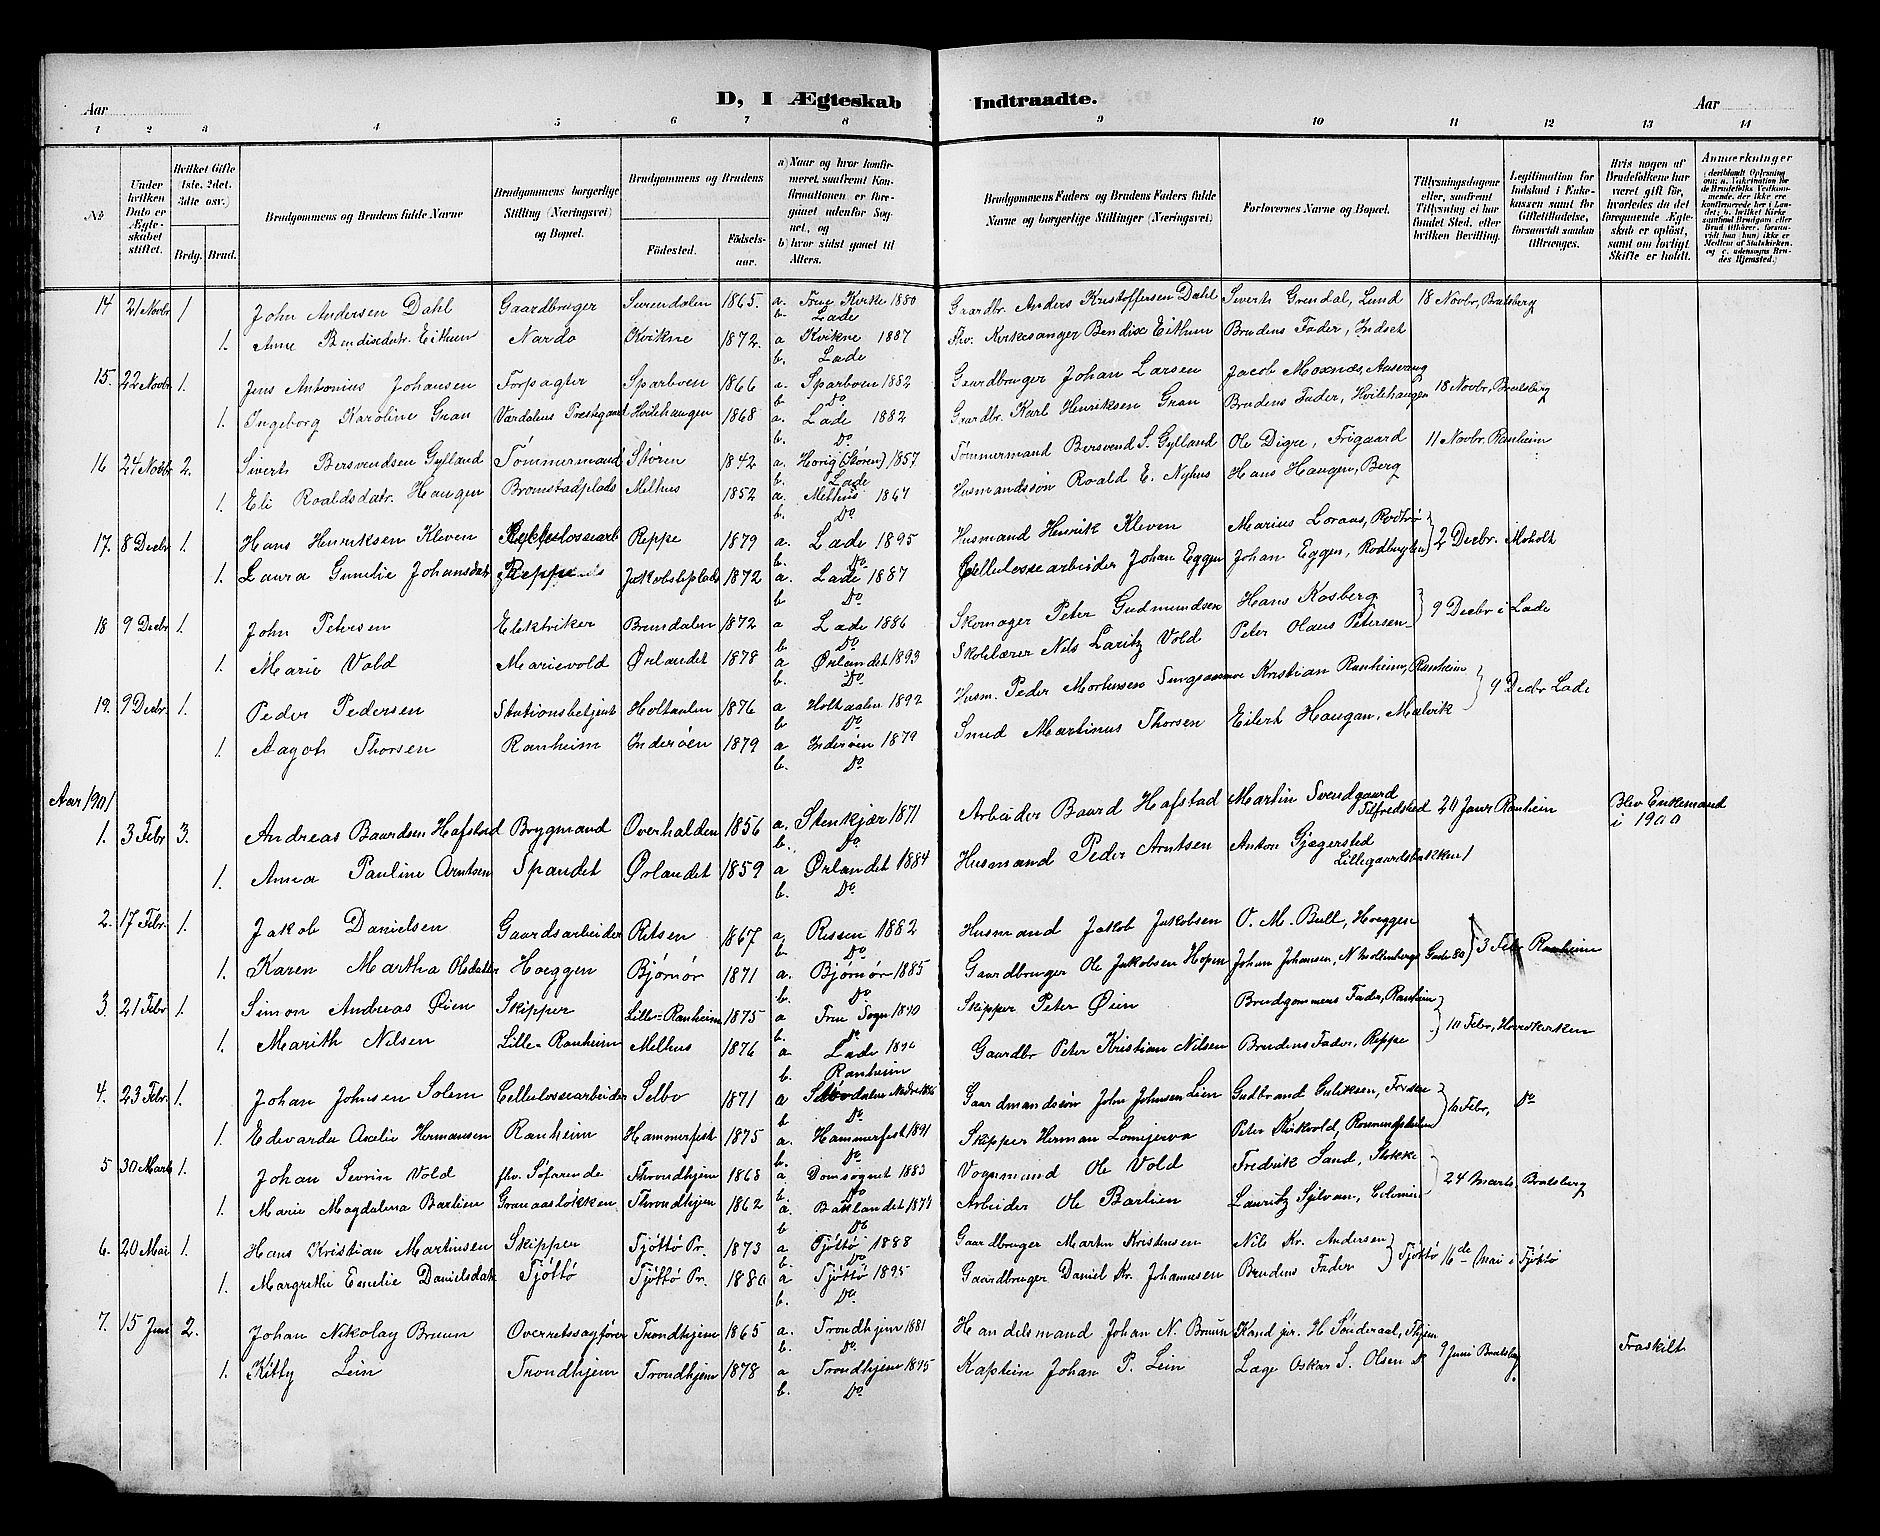 Aar
D, I Ægteskab Indtraadte.
Aar
1 2 3 4 5 6 7 8 9 10 11 12 13 14
No
Under hvilken Dato er Ægteskabet stiftet.
Hvilket Gifte 1ste. 2det. 3die osv.)
Brdg. Brud.
Brudgommens og Brudens fulde Navne
Brudgommens borgerlige Stilling (Næringsvei) og Bopæl.
Brudgommens og Brudens
Fødested. Fødsels-aar.
a) Naar og hvor konfirmeret, saafremt Konfirmationen er foregaaet udenfor Sognet, og
b) hvor sidst gaaet til Alters.
Brudgommens Faders og Brudens Faders fulde Navne og borgerlige Stillinger (Næringsvei)
Forlovernes Navne og Bopæl.
Tillysningsdagene eller, saafremt Tillysning ei har fundet Sted, efter hvilken Bevilling.
Legitimation for Indskud i Enkekassen samt for Giftetilladelse, forsaavidt saadan tiltrænges.
Hvis nogen af Brudefolkene har været gift før, hvorledes da det foregaaende Ægteskab er opløst, samt om lovligt Skifte er holdt.
Anmærkninger
14 21 Novbr 1 John Andersen Dahl Gaardbruger Surendalen 1865. a. Frue Kirke 1880 Gaardbr. Anders Kristoffersen Dahl Sivert Grendal, Lund 18 Novbr, Bratsberg
b. Lade
1. Anne Bendixsdatr. Eithun Nardo Kvikne 1872. a Kvikne 1887 Fhv. Kirkesanger Bendix Eithun Brudens Fader, Indset
b. Lade
15. 22 Novbr 1. Jens Antonius Johansen Forpagter Sparboen 1866 a. Sparboen 1882 Gaardbruger Johan Larsen Jacob Moxnæs,
b Do
18 Novbr, Bratsberg
1. Ingeborg Karoline Gran Værdalens Prestgaard Hvilehaugen 1868 a. Lade 1882 Gaardbr. Karl Henriksen Gran Brudens Fader, Hvilehaugen
b. Do
16 24 Novbr 2. Sivert Bersvendsen Gylland Tömmermand Støren 1842 a. Horig (Støren) 1857 Tömmermand Bersvend S. Gylland Ole Digre, Frigaard 11 Novbr. Ranheim
b. Lade
1. Eli Roaldsdatr. Haugen Bromstadplads Melhus 1852 a. Melhus 1867 Husmandssön Roald E. Nyhus Hans Haugen, Berg
b. Do
17. 8 Decbr 1. Hans Henriksen Kleven Reppe 1879 a. Lade 1895 Husmand Henrik Kleven Marius Loraas,
b. Do
2 Decbr. i Moholt
1. Laura Gunelie Johansdatr Reppe Jakobsliplads 1872 a. Lade 1887 Cellulossearbeider Johan Eggen Johan Eggen,
b Do
18 9 Decbr 1. John Petersen Elektriker Brundalen 1872 a Lade 1886 Skomager Peter Gudmundsen Hans Kosberg
b. Do
9 Decbr i Lade
1. Marie Vold Marievold Ørlandet 1878 a Ørlandet 1893 Skolelærer Nils Laritz Vold Peter Olaus Petersen
b. Do
19. 9 Decbr 1. Peder Pedersen Stationsbetjent Holtaalen 1876 a Holtaalen 1892 Husm. Peder Mortensen Kristian Ranheim, Ranheim
b Do
9 Decbr Lade
1. Aagoth Thorsen Ranheim Inderøen 1879 a Inderøen 1879 Smed Martinus Thorsen Eilert Haugan, Malvik
b. Do
Aar 1901
1. 3 Febr 3. Andreas Baardsen Hafstad Brygmand Overhalden 1856 a. Stenkjær 1871 Arbeider Baard Hafstad Martin Svendgaard Tilfredsted 20 Januar Ranheim Blev Enkemand i 1900
b. Do
1. Anna Pauline Arntsen Spandet Ørlandet 1859 a Ørlandet 1884 Husmand Peder Arntsen Anton Gjegersted Lillegaardsbakken 1
b. Do
2. 17 Febr. 1 Jakob Danielsen Gaardsarbeider Ritsen 1867 a. Rissen 1882 Husmand Jakob Jakobsen O. M. Bull, Hoeggen
b. Do
3 Febr Ranheim
1. Karen Martha Olsdatter Hoeggen Bjørnør 1871 a. Bjørnør 1885 Gaardbruger Ole Jakobsen Hopen Johan Johansen, N Mollenbergs Gade 80
b. Do
3. 21 Febr 1. Simon Andreas Øien Skipper Lille-Ranheim 1875 a Frue Sogn 1890 Skipper Peter Øien Brudgommens Fader, Ranheim
b. Do
10 Febr,
1. Marith Nilsen Lille-Ranheim Melhus 1876 a. Lade Gaardbr Peter Kristian Nilsen Brudens Fader, Reppe
b. Ranheim
4. 23 Febr. 1. Johan Johnsen Solem Cellulossearbeider Selbo 1871 a Gaardmandssön John Johnsen Lien Gudbrand
b. Do
Febr, Do
1. Edvarda Axelie Hermansen Ranheim Hammerfest 1875 a. Hammerfest 1891 Skipper Herman Lomijerva Peter Kirkvold,
b. Do
5 30 Marts 1. Johan Sevrin Vold fhv. Söfarende Throndhjem 1868 a Domsognet 1883 Vognmand Ole Vold Fredrik Sand, Stokke
b. Do
24 Marts, Bratsberg
1. Marie Magdalena Barlien Granaasløkken Throndhjem 1862 a. Baklandet 1877 Arbeider Ole Barlien Lauritz
b Do
6. 20 Mai 1. Hans Kristian Martinsen Skipper Tjöttö Pr. 1873 a Tjöttö 1888 Gaardbruger Martin Kristensen Nils Kr. Andersen
b. Do
Tjöttö 16de Mai i Tjöttö
1. Margrethe Emelie Danielsdatr Tjöttö Tjöttö Pr. 1880 a Tjöttö 1895 Gaardbruger Daniel Kr. Johannesen Brudens Fader
b. Do
7. 15 Juni 2. Johan Nikolay Bruun Overretssagfører Trondhjem 1865 a. Trondhjem 1881 Handelsmand Johan N. Bruun Kand jur. H Sönderaal, Thjem
b. Do
9 Juni Bratsberg Fraskilt
1. Kitty Lein Trondhjem Trondhjem 1878 a Trondhjem 1895 Kaptein Johan P. Lein Læge Oskar S. Olsen Do
b. Do